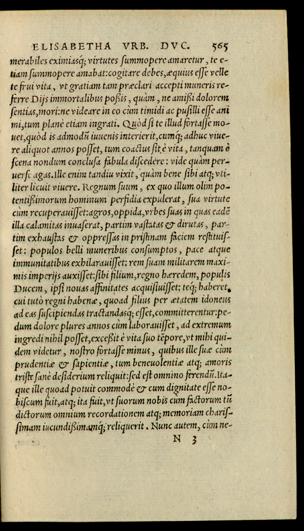 ELISABETHA VRB. DVC. 565
merabiles eximiasq; virtutes summopere amaretur, te e-
tiam summopere amabat: cogitare debes, æquius esse velle
te frui vita, vt gratiam tam præclari accepti muneris re-
ferre Dijs immortalibus possis, quàm, ne amissi dolorem
sentias, mori: ne videare in eo cùm timidi ac pusilli esse ani
mi, tum planè etiam ingrati. Quòd si te illud fortasse mo-
uet, quod is admodũ iuuenis interierit, cumq; adhuc viue-
re aliquot annos posset, tum coactus sit è vita, tanquam è
scena nondum conclusa fabula discedere: vide quàm per-
uersè agas. Ille enim tandiu vixit, quàm bene sibi atq; vti-
liter licuit viuere. Regnum suum, ex quo illum olim po-
tentissimorum hominum perfidia expulerat, sua virtute
cùm recuperauisset: agros, oppida, vrbes suas in quas eadẽ
illa calamitas inuaserat, partim vastatas & dirutas, par-
tim exhaustas & oppressas in pristinam faciem restituis-
set: populos belli muneribus consumptos, pace atque
immunitatibus exhilarauisset: rem suam militarem maxi-
mis imperijs auxisset: sibi filium, regno hæredem, populis
Ducem, ipsi nouas affinitates acquisiuisset: teq; haberet,
cui tutò regni habenæ, quoad filius per ætatem idoneus
ad eas suscipiendas tractandasq; esset, committerentur: pe-
dum dolore plures annos cùm laborauisset, ad extremum
ingredi nihil posset, excessit è vita suo tẽpore, vt mihi qui-
dem videtur, nostro fortasse minus, quibus ille suæ cùm
prudentiæ & sapientiæ, tum beneuolentiæ atq; amoris
triste sanè desiderium reliquit: sed est omnino ferendũ. Ita-
que ille quoad potuit commodè & cum dignitate esse no-
biscum fuit, atq; ita fuit, vt suorum nobis cum factorum tũ
dictorum omnium recordationem atq; memoriam charis-
simam iucundissimamq; reliquerit. Nunc autem, cùm ne-
N 3